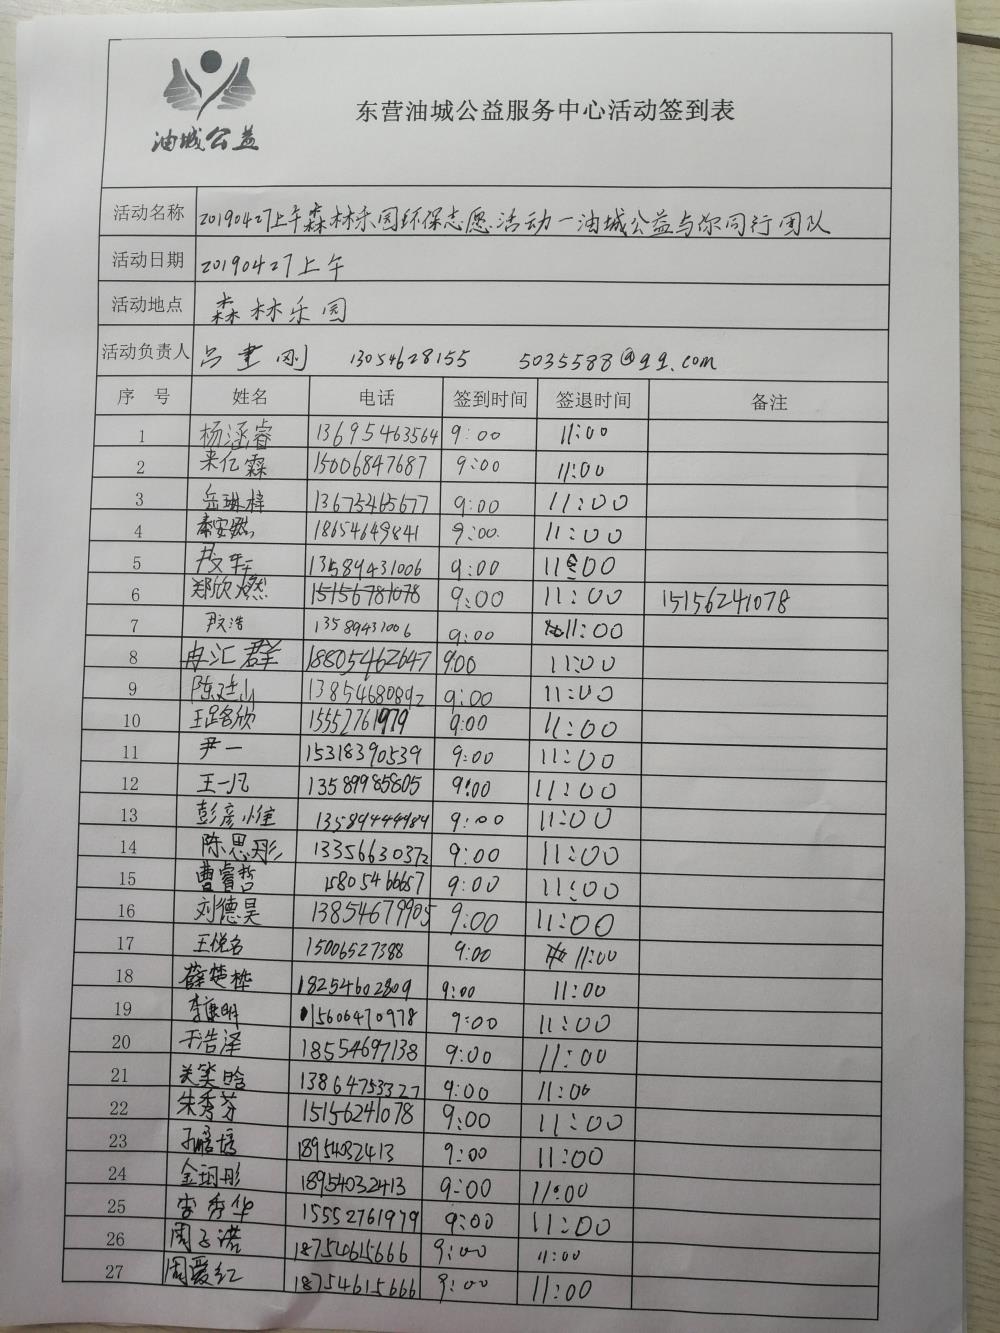 油城公益
东营油城公益服务中心活动签到表
活动名称 20190427上午森林乐园环保志愿活动—油城公益与你同行团队
活动日期 20190427上午
活动地点 森林乐园
活动负责人 吕建刚 13054628155 5035588@qq.com
序号 姓名 电话 签到时间 签退时间 备注
1 杨涵睿 13695463564 9:00 11:00
2 来亿霖 15006847687 9:00 11:00
3 岳琳梓 13675465677 9:00 11:00
4 秦安然 18654649841 9:00 11:00
5 13589431006 9:00 11:00
6 郑欣燃 15156781078 9:00 11:00 15156241078
7 尹文浩 13589431006 9:00 11:00
8 冉汇群 18805462647 9:00 11:00
9 陈廷山 13854680892 9:00 11:00
10 王路欣 15552761979 9:00 11:00
11 尹一 15318390539 9:00 11:00
12 王一凡 13589985805 9:00 11:00
13 彭彦惟 13589444484 9:00 11:00
14 陈思彤 13356630372 9:00 11:00
15 曹睿哲 15805466657 9:00 11:00
16 刘德昊 13854679905 9:00 11:00
17 王悦名 15006527388 9:00 11:00
18 薛楚桦 18254602809 9:00 11:00
19 李康明 15606470978 9:00 11:00
20 于浩泽 18554697138 9:00 11:00
21 关笑晗 13864753327 9:00 11:00
22 朱秀芬 15156241078 9:00 11:00
23 18954032413 9:00 11:00
24 金珂彤 18954032413 9:00 11:00
25 李秀华 15552761979 9:00 11:00
26 周子诺 18754615666 9:00 11:00
27 周爱红 18754615666 9:00 11:00